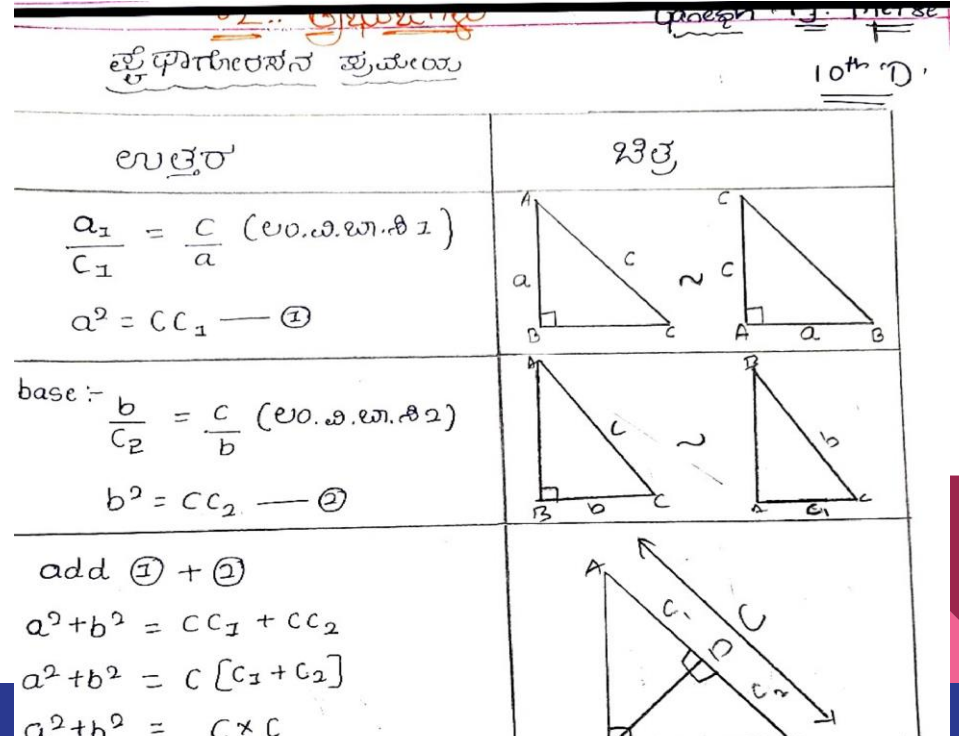 02.. ತ್ರಿಭುಜಗಳು
10th 'D'
ಪೈಥಾಗೋರಸನ ಪ್ರಮೇಯ
ಉತ್ತರ
ಚಿತ್ರ
a₁/C₁ = C/a (ಲಂ.ವಿ.ಬಾ.ತ್ರಿ 1)
a² = CC₁ — ①
A a B C C ~ C C A a B
base :-
b/C₂ = C/b (ಲಂ.ವಿ.ಬಾ.ತ್ರಿ 2)
b² = CC₂ — ②
A C B b C ~ B b A C₁ C
add ① + ②
a²+b² = CC₁ + CC₂
a²+b² = C [C₁ + C₂]
a²+b² = C × C
A C₁ C D C₂